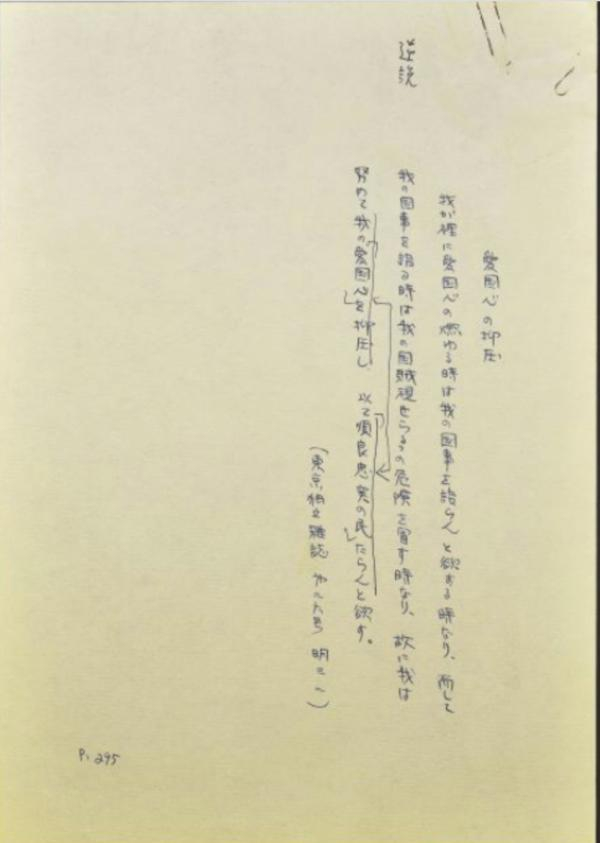 愛国心の抑圧
我が裡に愛国心の燃ゆる時は我の国事を語らんと欲する時なり、而して
逆説
我の国事を語る時は我の国賊視せらるゝの危険を冒す時なり、故に我は
努めて我の愛国心を抑圧し、以て順良忠実の民たらんと欲す。
(東京独立雑誌 号 明三一)
P. 295